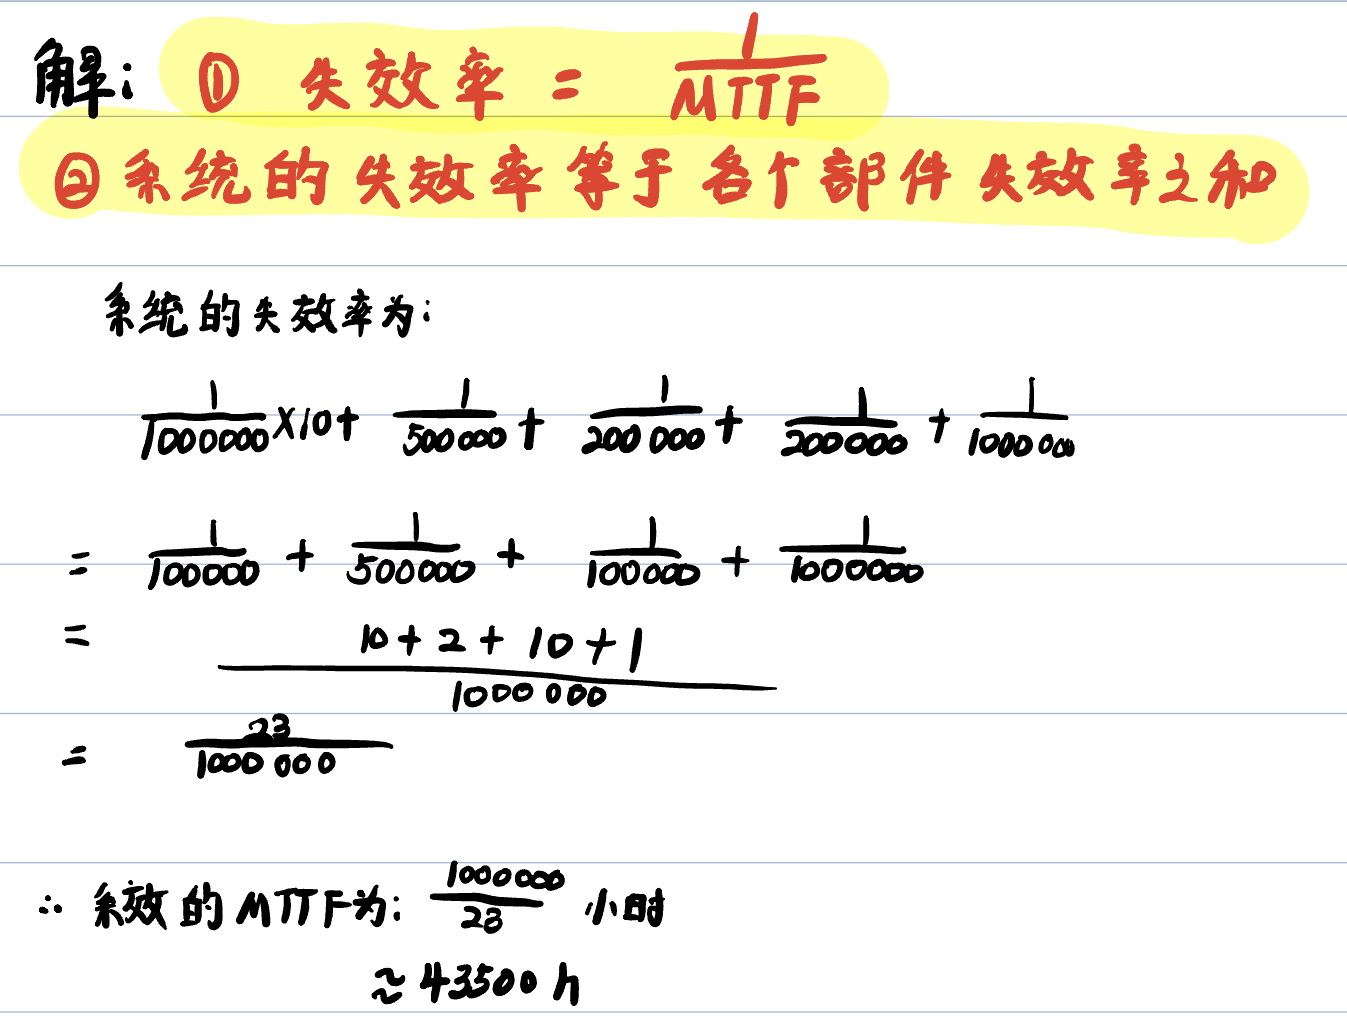 解: ① 失效率 = 1/MTTF
② 系统的失效率等于各个部件失效率之和
系统的失效率为:
1/1000000 ×10 + 1/500000 + 1/200000 + 1/200000 + 1/1000000
= 1/100000 + 1/500000 + 1/100000 + 1/1000000
= 10+2+10+1/1000000
= 23/1000000
∴ 系效的MTTF为: 1000000/23 小时
≈43500 h